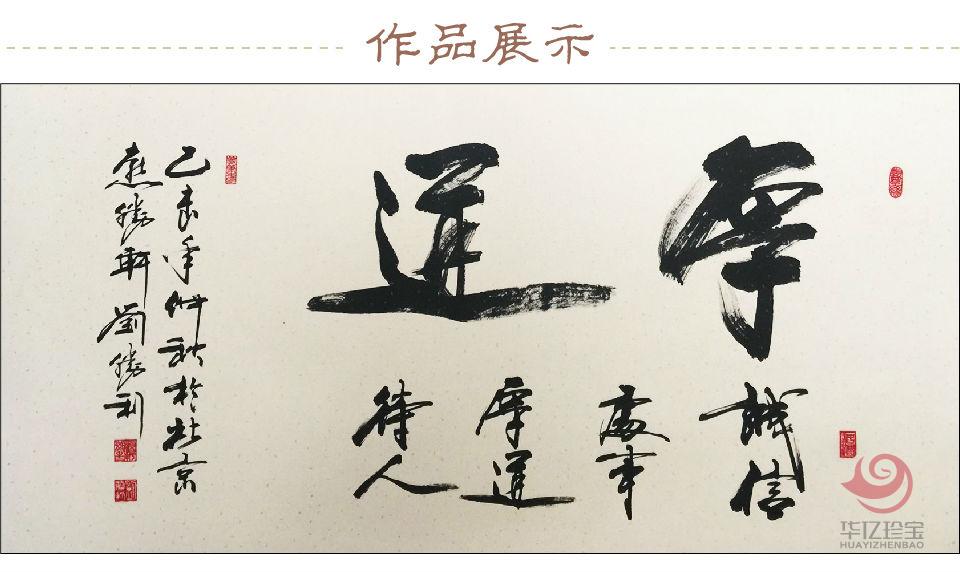 作品展示
厚道
誠信
處事
厚道
待人
乙未年仲秋於北京
勝軒劉勝利
华亿珍宝
HUAYIZHENBAO